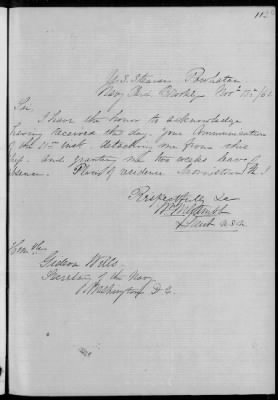 112
U.S. Steamer Powhatan
Navy Yard Brooklyn Nov. /61
Sir,
I have the honor to acknowledge
having received this day, your Communication
of the inst. detaching me from this
ship, and granting me two weeks leave of
absence. Place of residence Morristown N. J.
Respectfully &c
Lieut U.S.N.
Hon. ble
Gideon Wells.
Secretary of the Navy
Washington D.C.